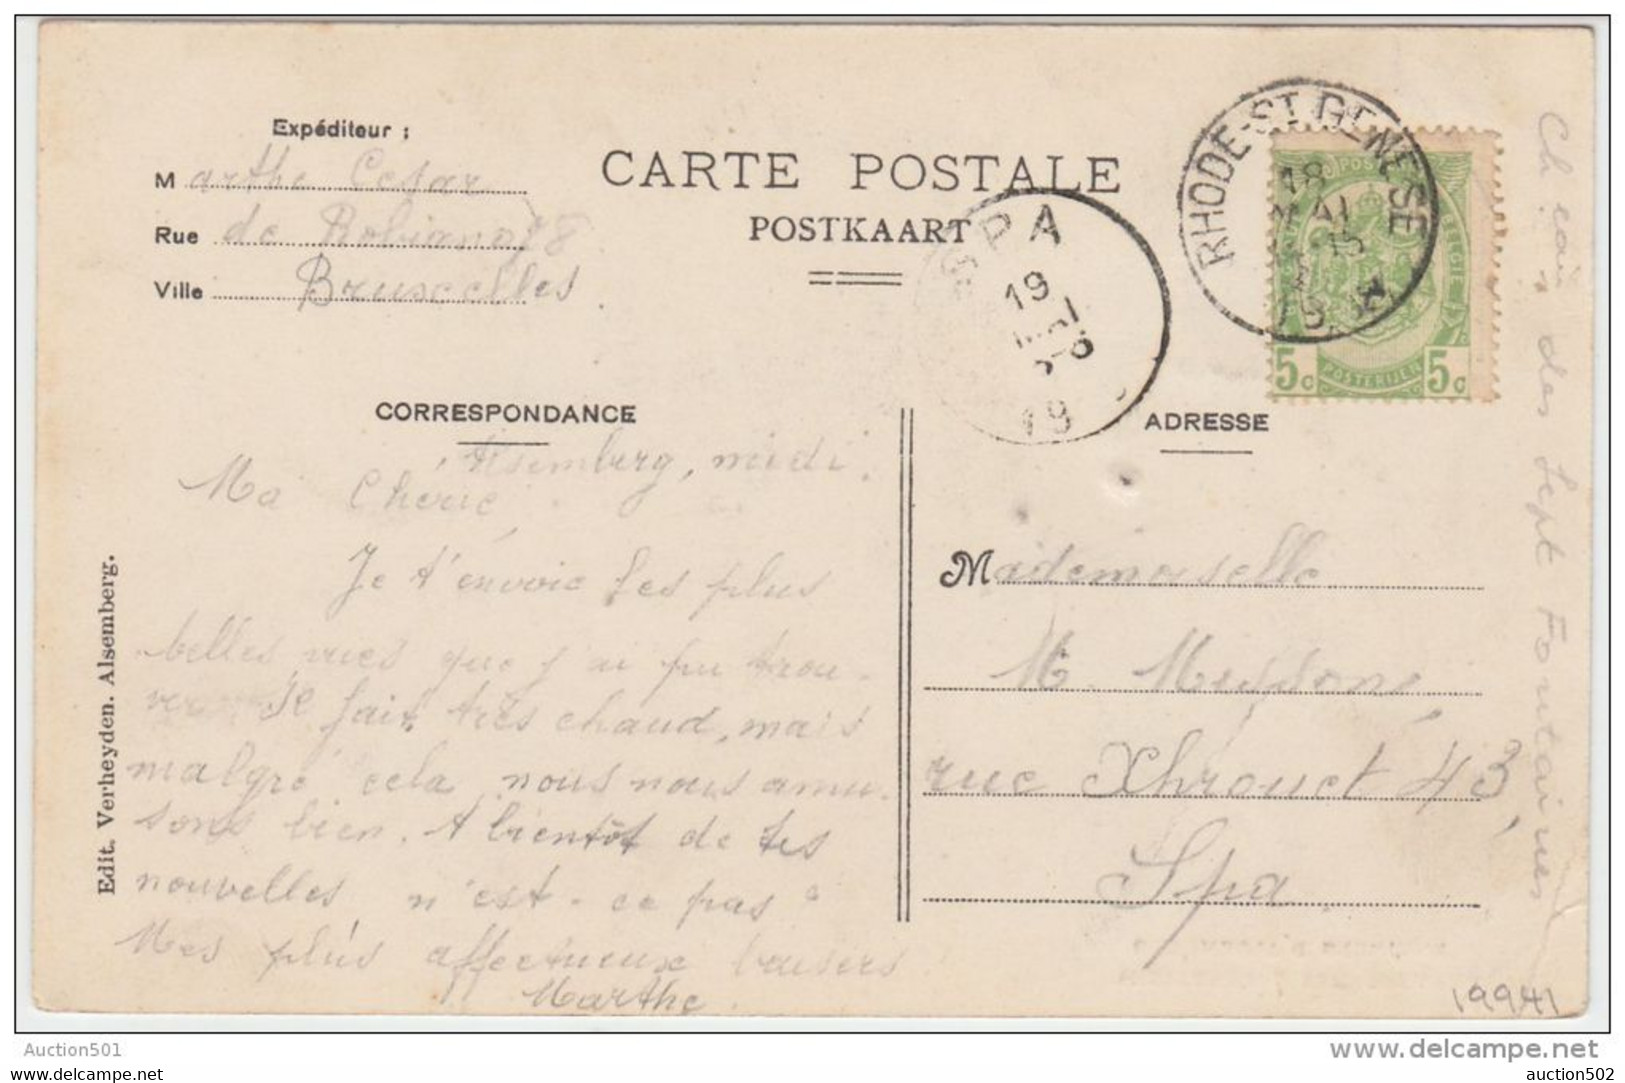 Expéditeur :
Marthe Cesar
Rue de Robiano 78
Ville Bruxelles
CARTE POSTALE
POSTKAART
SPA
19
MAI
19
RHODE-ST-GENESE
18
MAI
POSTERIJEN
BELGIE
5c 5c
CORRESPONDANCE
ADRESSE
Alsemberg, midi.
Ma Chérie,
Je t'envoie les plus
belles vues que j'ai pu trou-
ver Il fait très chaud, mais
malgré cela nous nous amu-
sons bien. A bientôt de tes
nouvelles n'est-ce pas
Mes plus affectueux baisers
Marthe.
Mademoiselle
M. Missone,
rue Xhrouet 43,
Spa.
Edit. Verheyden. Alsemberg.
des Sept Fontaines
19941
Auction501
www.delcampe.net
auction501.com
auction502